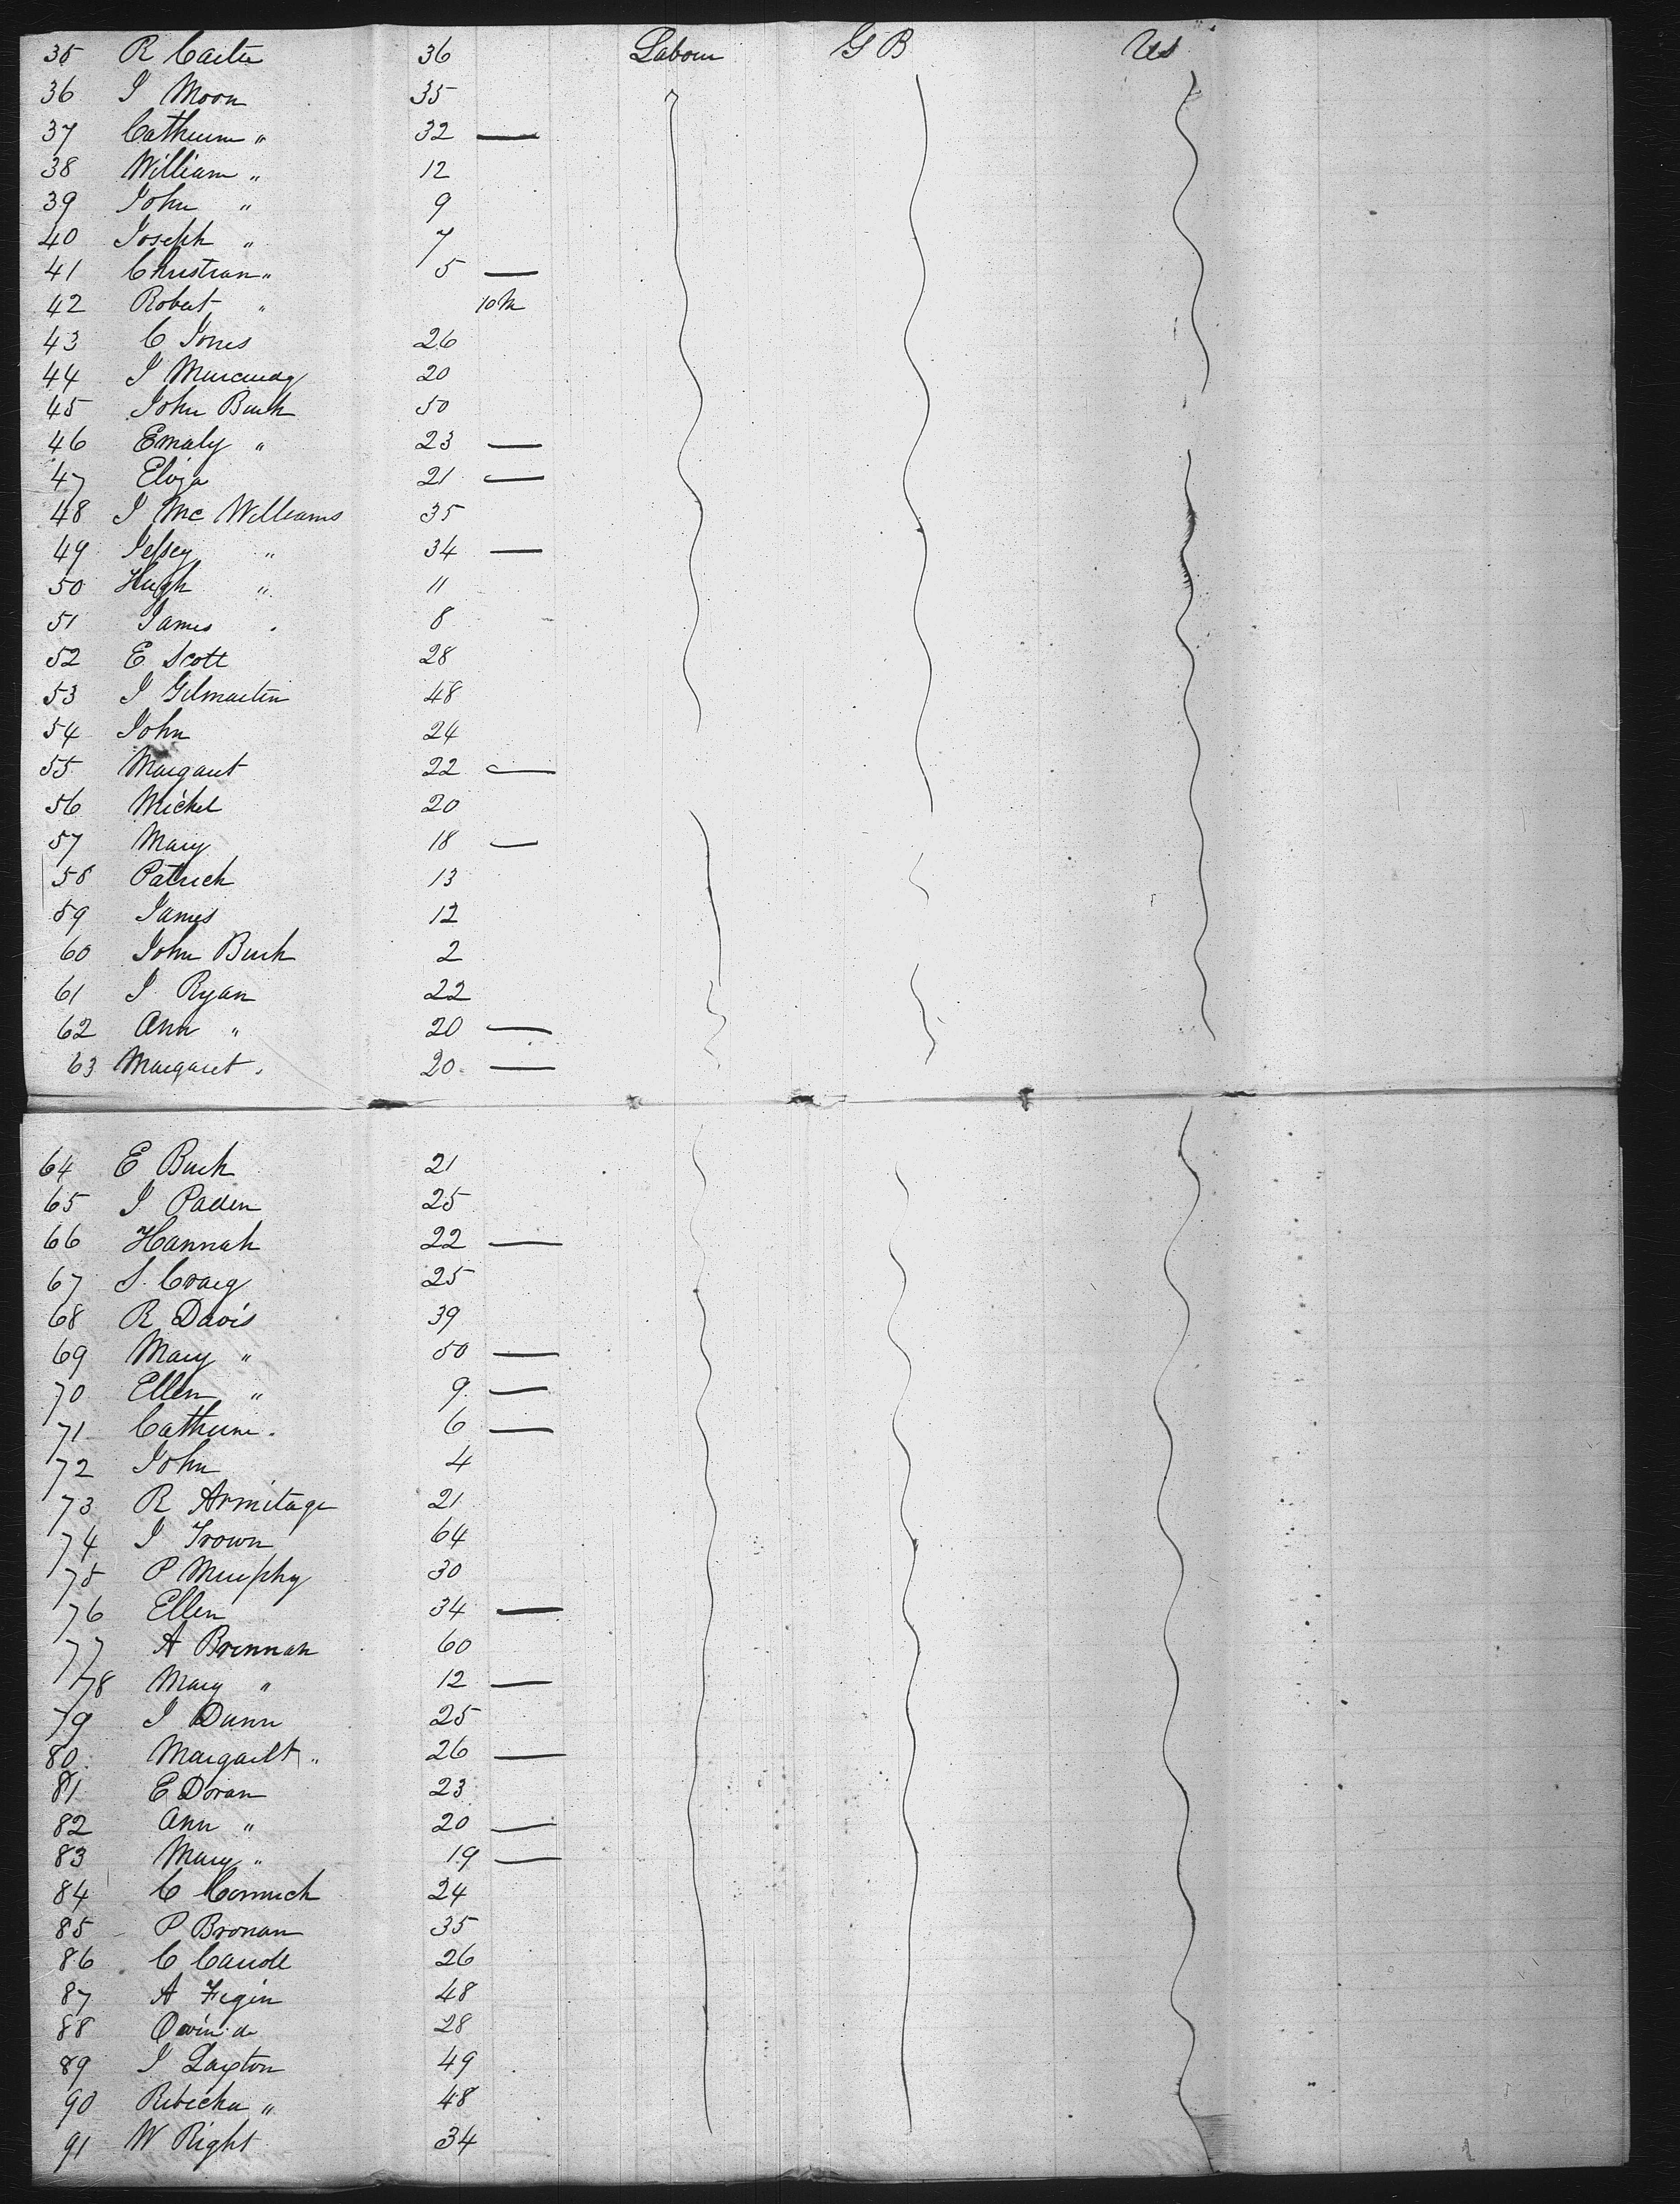 35 R Carter 36 Labour G B Us
36 J Moon 35
37 Catherine " 32 —
38 William " 12
39 John " 9
40 Joseph " 7
41 Christian " 5 —
42 Robert " 10 M
43 C Jones 26
44 J 20
45 John Burk 50
46 Emaly " 23 —
47 Eliza 21 —
48 J Mc Williams 35
49 Jessey " 34 —
50 Hugh " 11
51 James . 8
52 E Scott 28
53 J Gilmartin 48
54 John 24
55 Margaret 22 —
56 Michel 20
57 Mary 18 —
58 Patrick 13
59 James 12
60 John Burk 2
61 J Ryan 22
62 Ann " 20 —
63 Margaret . 20 —
64 E Burk 21
65 J Paden 25
66 Hannah 22 —
67 S. Craig 25
68 R Davis 39
69 Mary " 50 —
70 Ellen " 9 —
71 Catherine . 6 —
72 John 4
73 R Armitage 21
74 J 64
75 P Murphy 30
76 Ellen 34 —
77 A Brennan 60
78 Mary " 12 —
79 J Dunn 25
80 Margaret " 26 —
81 E Doran 23
82 Ann " 20 —
83 Mary " 19 —
84 C Cormick 24
85 P Bronan 35
86 C Carroll 26
87 A Fegin 48
88 Owin do 28
89 J Layton 49
90 Rebecka " 48
91 W Right 34